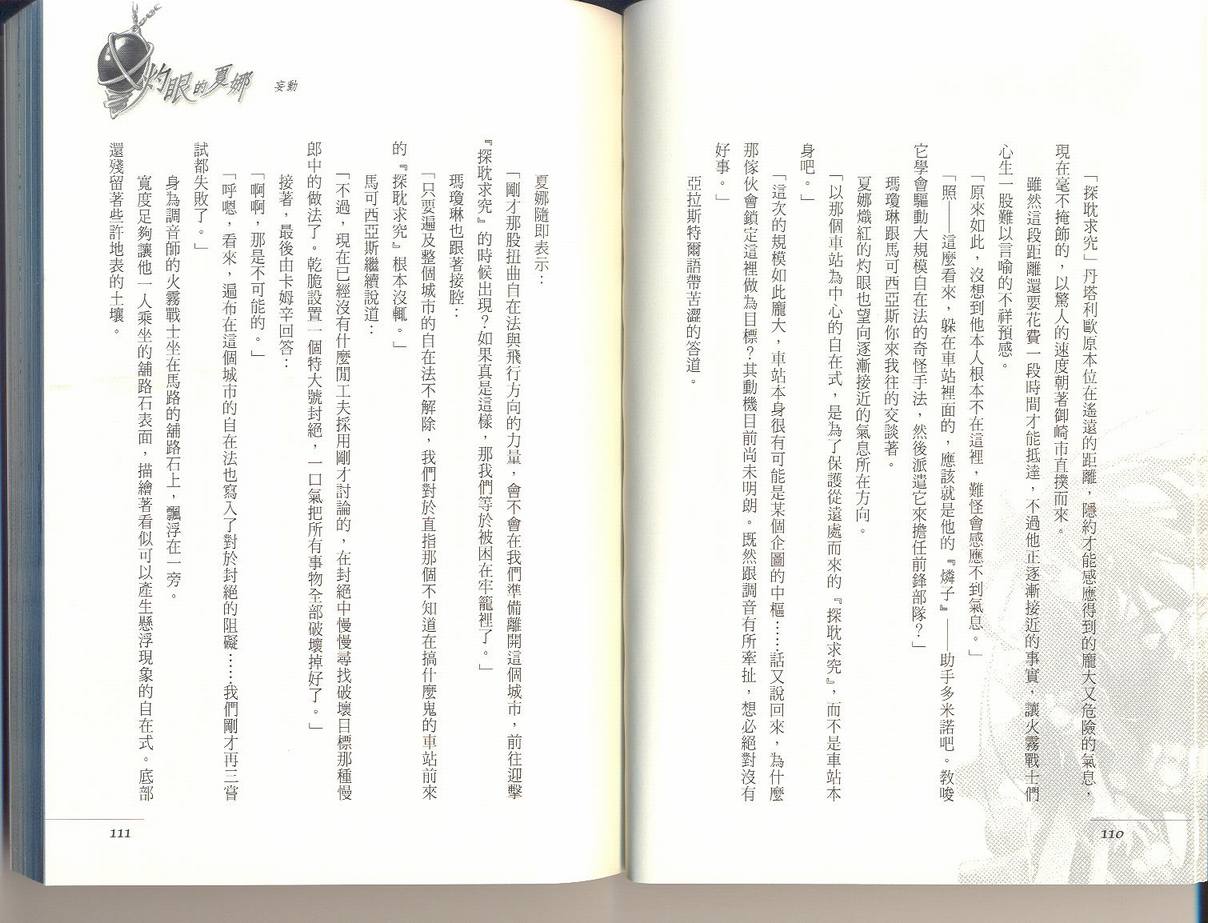 「探耽求究」丹塔利歐原本位在遙遠的距離，隱約才能感應得到的龐大又危險的氣息，
現在毫不掩飾的，以驚人的速度朝著御崎市直撲而來。
雖然這段距離還要花費一段時間才能抵達，不過他正逐漸接近的事實，讓火霧戰士們
心生一股難以言喻的不祥預感。
「原來如此，沒想到他本人根本不在這裡，難怪會感應不到氣息。」
「照——這麼看來，躲在車站裡面的，應該就是他的『燐子』——助手多米諾吧。教唆
它學會驅動大規模自在法的奇怪手法，然後派遣它來擔任前鋒部隊？」
瑪瓊琳跟馬可西亞斯你來我往的交談著。
夏娜熾紅的灼眼也望向逐漸接近的氣息所在方向。
「以那個車站為中心的自在式，是為了保護從遠處而來的『探耽求究』，而不是車站本
身吧。」
「這次的規模如此龐大，車站本身很有可能是某個企圖的中樞……話又說回來，為什麼
那傢伙會鎖定這裡做為目標？其動機目前尚未明朗。既然跟調音有所牽扯，想必絕對沒有
好事。」
亞拉斯特爾語帶苦澀的答道。
110
灼眼的夏娜 妄動
夏娜隨即表示：
「剛才那股扭曲自在法與飛行方向的力量，會不會在我們準備離開這個城市，前往迎擊
『探耽求究』的時候出現？如果真是這樣，那我們等於被困在牢籠裡了。」
瑪瓊琳也跟著接腔：
「只要遍及整個城市的自在法不解除，我們對於直指那個不知道在搞什麼鬼的車站前來
的『探耽求究』根本沒輒。」
馬可西亞斯繼續說道：
「不過，現在已經沒有什麼閒工夫採用剛才討論的，在封絕中慢慢尋找破壞目標那種慢
郎中的做法了。乾脆設置一個特大號封絕，一口氣把所有事物全部破壞掉好了。」
接著，最後由卡姆辛回答：
「啊啊，那是不可能的。」
「呼嗯，看來，遍布在這個城市的自在法也寫入了對於封絕的阻礙……我們剛才再三嘗
試都失敗了。」
身為調音師的火霧戰士坐在馬路的舖路石上，飄浮在一旁。
寬度足夠讓他一人乘坐的舖路石表面，描繪著看似可以產生懸浮現象的自在式。底部
還殘留著些許地表的土壤。
111